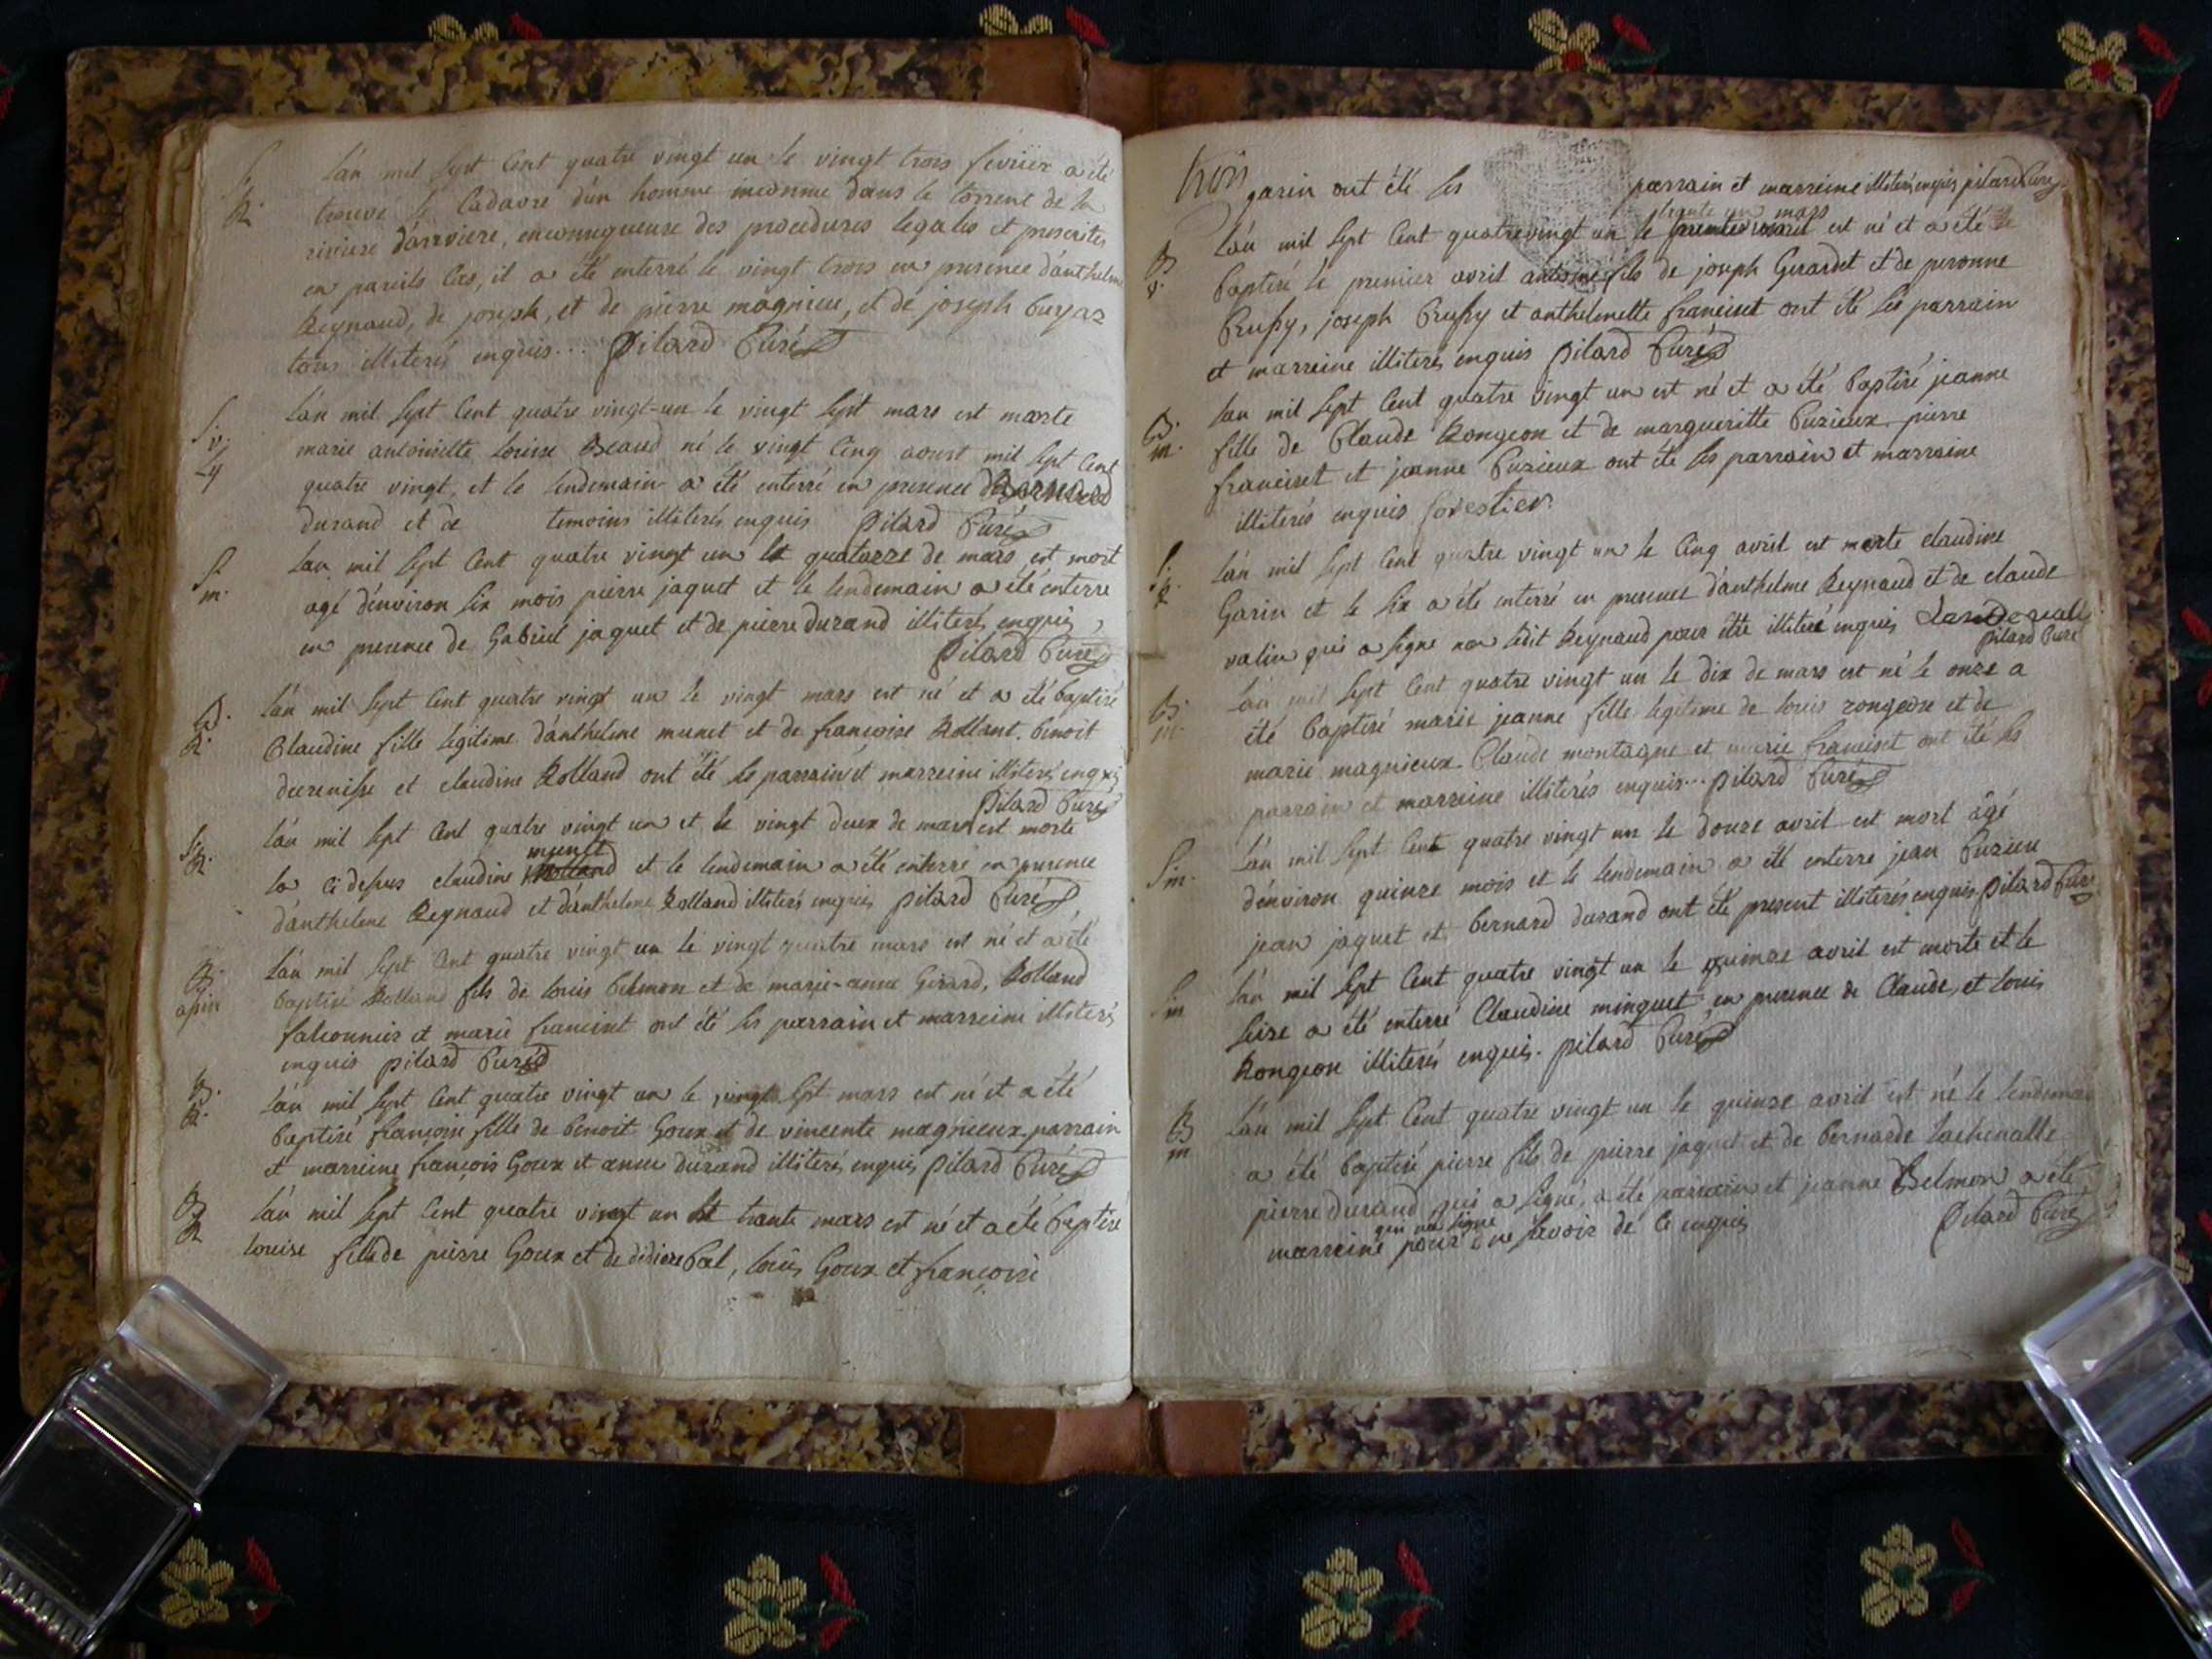 S.
R.
lán mil sept Cent quatre vingt un le vingt trois fevrier a été
trouvé le Cadavre d'un homme inconnue dans le torrent de la
riviere d'arviere, enconsequense des procedures legales et prescrites
en pareils Cas, il a été enterré le vingt trois en presence d'anthelme
Reynaud, de joseph, et de pierre magnieu, et de joseph
tous illiterés enquis... pilard Curé
S.
v.
Ly
lán mil sept Cent quatre vingt-un le vingt sept mars est morte
marie antoinette louise Beaud né le vingt Cinq aoust mil sept Cent
quatre vingt, et le lendemain a été enterré en presence de Bernard
durand et de temoins illiterés enquis pilard Curé
S.
m.
lan mil sept Cent quatre vingt un le quatorze de mars est mort
agé d'environ six mois pierre jaquet et le lendemain a été enterre
en presence de Gabriel jaquet et de pierre durand illiterés enquis,
pilard Curé
B.
R.
lán mil sept Cent quatre vingt un le vingt mars est né et a été baptisé
Claudine fille legitime d'anthelme munet et de françoise Rolland. benoit
et claudine Rolland ont été les parrain et marreine illiterés enquis
pilard Curé
S.
R.
lán mil sept Cent quatre vingt un et le vingt deux de mars est morte
munet
la Cidessus claudine Rolland et le lendemain a été enterré en presence
d'anthelme Reynaud et d'anthelme Rolland illiterés enquis pilard Curé
B.
lán mil sept Cent quatre vingt un le vingt quatre mars est né et a été
baptisé Rolland fils de louis belmon et de marie-anne Girard, Rolland
falconnier et marie franciset ont été les parrain et marreine illiterés
enquis pilard Curé
B.
R.
lán mil sept Cent quatre vingt un le vingt sept mars est né et a été
baptisé françoise fille de benoit Goux et de vincente magnieux parrain
et marreine françois Goux et anne durand illiterés enquis pilard Curé
B
R
lán mil sept Cent quatre vingt un le trente mars est né et a été baptisé
louise fille de pierre Goux et de didiere bal, louis Goux et françoise
trois
garin ont été les parrain et marreine illiterés enquis pilard Curé
trente un mars
B
v.
lán mil sept Cent quatrevingt un le premier avril est né et a été
baptisé le premier avril antoine fils de joseph Gerardet et de peronne
Brussy, joseph Brussy et anthelmette franciset ont été les parrain
et marreine illiterés enquis pilard Curé
B.
m.
lan mil sept Cent quatre vingt un est né et a été baptisé jeanne
fille de Claude Rongeon et de margueritte Curieux pierre
franciset et jeanne Curieux ont été les parrain et marraine
illiterés enquis forestier
S.
R
lán mil sept Cent quatre vingt un le Cinq avril est morte claudine
Garin et le six a été enterré en presence d'anthelme Reynaud et de claude
valin qui a signe non ledit Reynaud pour etre illiteré enquis
pilard Curé
B.
m.
lán mil sept Cent quatre vingt un le dix de mars est né le onze a
été baptisé marie jeanne fille legitime de louis rongeon et de
marie magnieux. Claude montagne et marie franciset ont été les
parrain et marreine illiterés enquis... pilard Curé
S.
m.
lán mil sept Cent quatre vingt un le douze avril est mort âgé
d'environ quinze mois et le lendemain a été enterre jean Curieu
jean jaquet et bernard durand ont été present illiterés enquis pilard Curé
S.
m
lán mil sept Cent quatre vingt un le quinze avril est morte et le
seize a été enterré Claudine minquet en presence de Claude, et louis
Rongeon illiterés enquis. pilard Curé
B
m
lán mil sept Cent quatre vingt un le quinze avril est né le lendemain
a été baptisé pierre fils de pierre jaquet et de bernarde lachenalle
pierre durand qui a signé, a été parrain et jeanne Belmon a été
qui na signe
marreine pour ne savoir de Ce enquis
pilard Curé